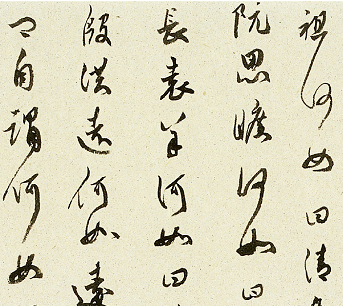 祖何如曰清
阮思曠何如曰
長袁羊何如曰
殷洪遠何如遠
卿自謂何如